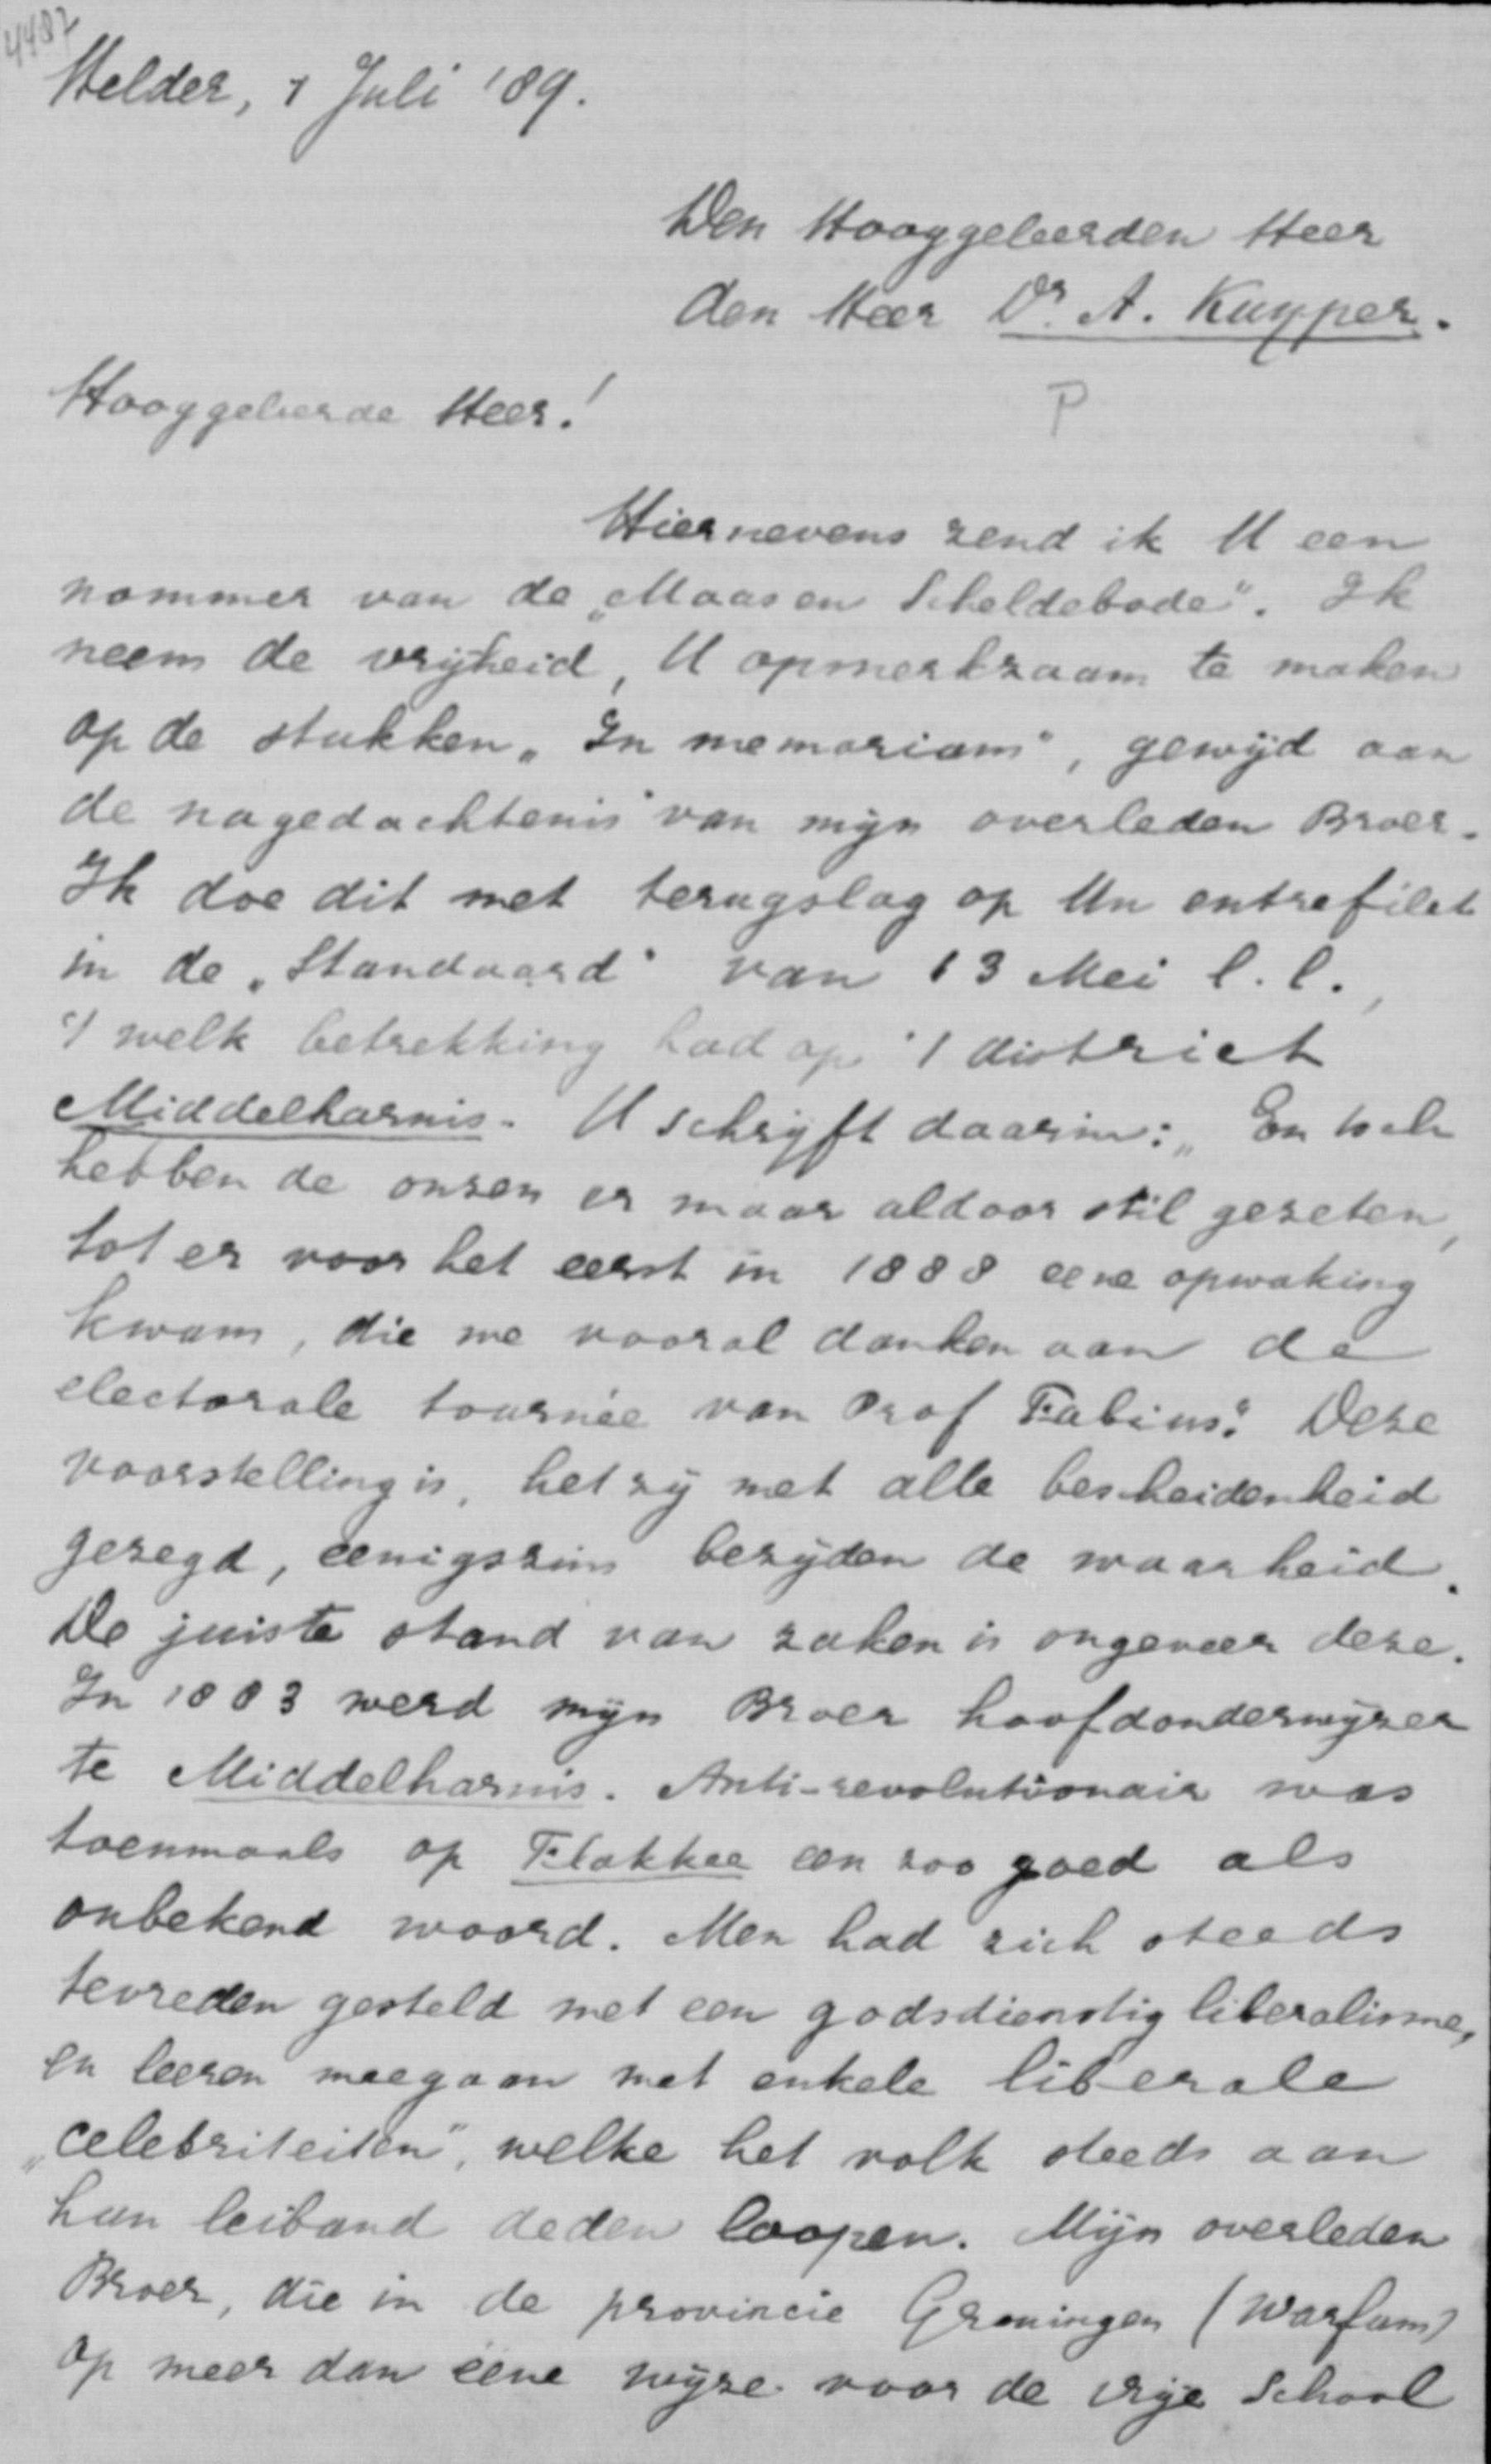 4487
Helder, 1 Juli '89.
Den Hooggeleerden Heer
den Heer Dr. A. Kuyper.
P
Hooggeleerde Heer!
Hiernevens zend ik U een
nommer van de „Maas en Scheldebode". Ik
neem de vrijheid, U opmerkzaam te maken
op de stukken „In memoriam", gewijd aan
de nagedachtenis van mijn overleden Broer.
Ik doe dit met terugslag op Uw entrefilet
in de „Standaard" van 13 Mei l.l.,
't welk betrekking had op 't district
Middelharnis. U schrijft daarin: „En toch
hebben de onzen er maar aldoor stil gezeten,
tot er voor het eerst in 1888 eene opwaking
kwam, die we vooral danken aan de
electorale tournée van Prof Fabius." Deze
voorstelling is, het zij met alle bescheidenheid
gezegd, eenigszins bezijden de waarheid.
De juiste stand van zaken is ongeveer deze.
In 1883 werd mijn Broer hoofdonderwijzer
te Middelharnis. Anti-revolutionair was
toenmaals op Flakkee een zoo goed als
onbekend woord. Men had zich steeds
tevreden gesteld met een godsdienstig liberalisme,
en leeren meegaan met enkele liberale
„celebriteiten", welke het volk steeds aan
hun leiband deden loopen. Mijn overleden
Broer, die in de provincie Groningen (Warfum)
op meer dan eene wijze voor de vrije School